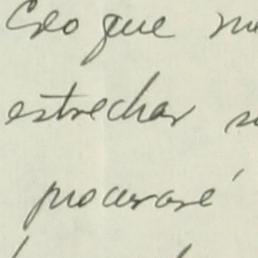 Creo que
estrechar
procuraré